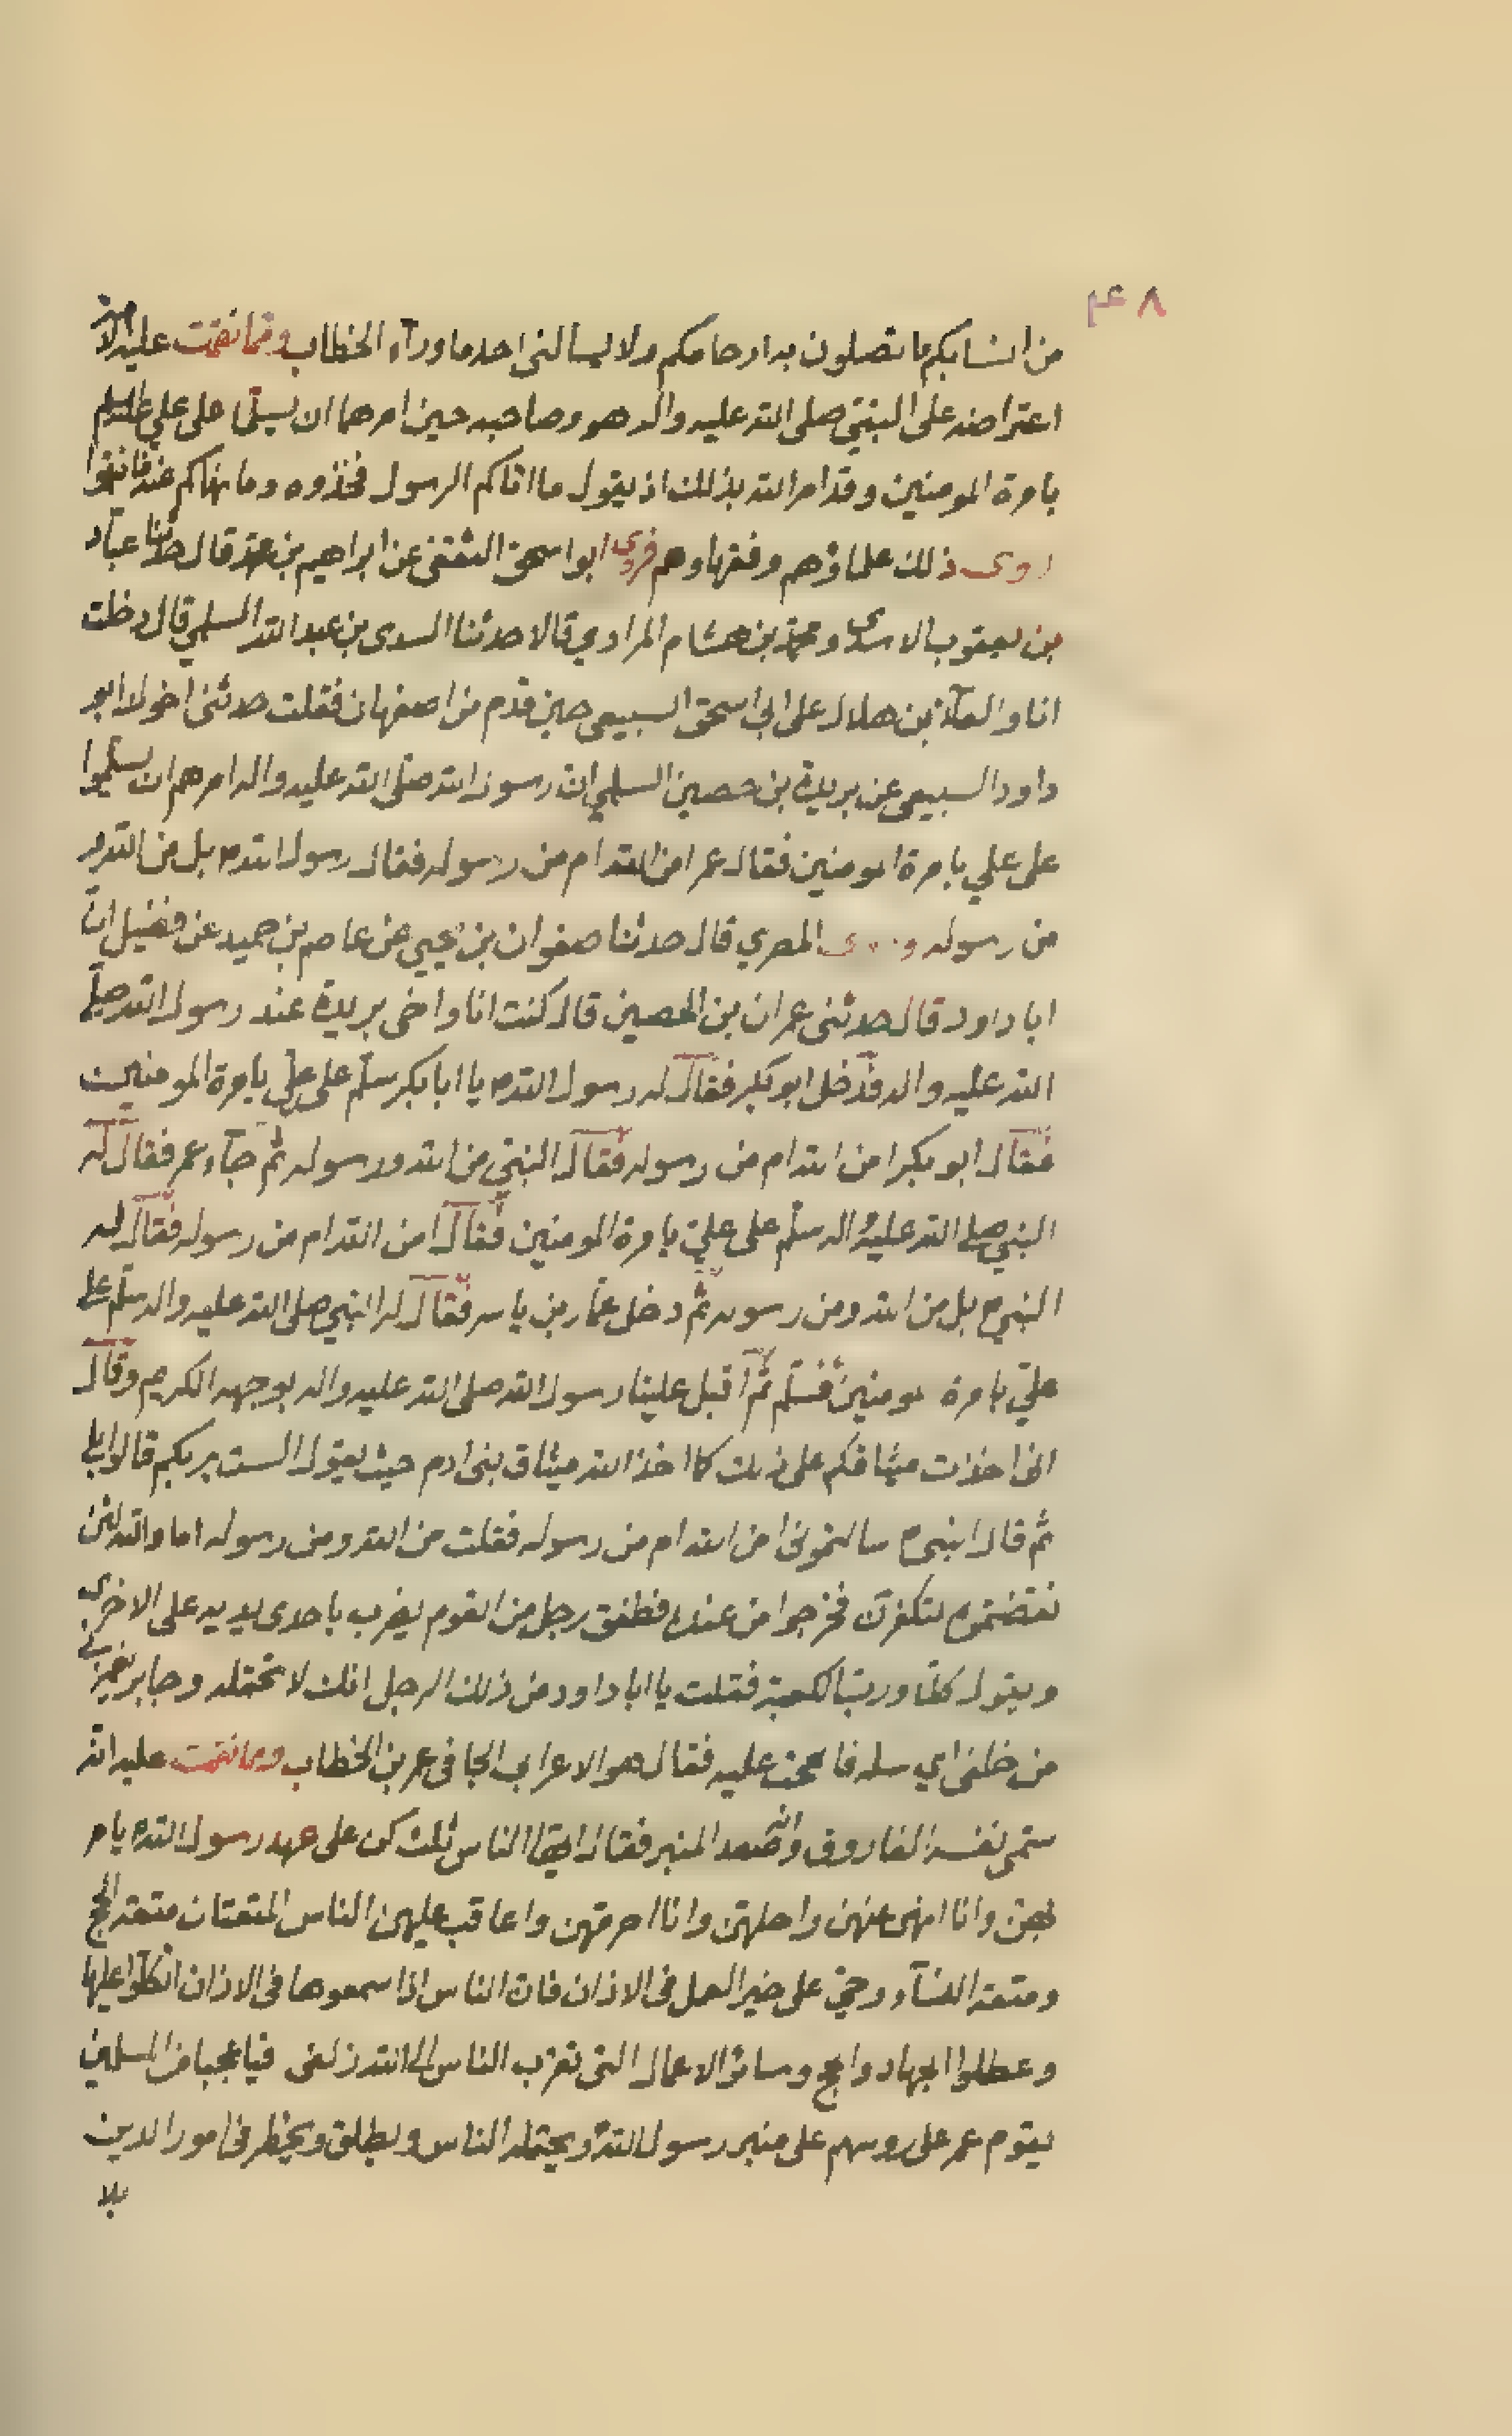 ٤٨
من انسابكم ما تصلون به ارحامكم ولا يسالنى احد ما ورآء الخطاب ومما نقمت عليه
اعتراضه على النبيّ صلى الله عليه واله هو وصاحبه حين امرهما ان يسلما على علي عليه السلم
بامرة المومنين وقد امر الله بذلك اذ يقول ما اتاكم الرسول فخذوه وما نهاكم عنه فانتهوا
روى ذلك علماؤهم وفقهاوهم فروى ابو اسحق الثقفى عن ابراهيم بن محمد قال حدثنا عباد
بن يعقوب الاسدى ومحمد بن هشام المرادي قالا حدثنا السدى بن عبد الله السلمي قال دخلت
انا والعلآ بن هلال على ابى اسحق السبيعى حين قدم من اصفهان فقلت حدثنى اخولا ابو
داود السبيعى عن بريدة بن حصين السلمي انّ رسول الله صلّى الله عليه واله امرهم ان يسلّموا
على علي بامرة المومنين فقال عمر امن الله ام من رسوله فقال رسول الله ص بل من الله و
من رسوله وروى المصري قال حدثنا صفوان بن يحيى عن عاصم بن حميد عن فضيل انّ
ابا داود قال حدثنى عمران بن الحصين قال كنت انا واخى بريدة عند رسول الله صلّى
الله عليه واله فدخل ابو بكر فقال له رسول الله ص يا ابا بكر سلّم على علي بامرة المومنين
فقال ابو بكر امن الله ام من رسوله فقال النبيّ من الله ورسوله ثمّ جآء عمر فقال له
النبي صلى الله عليه واله سلّم على عليّ بامرة المومنين فقال امن الله ام من رسوله فقال له
النبي ص بل من الله ومن رسوله ثمّ دخل عمّار بن ياسر فقال له النبي صلى الله عليه واله سلّم على
عليّ بامرة مومنين فسلّم ثمّ اقبل علينا رسول الله صلى الله عليه واله بوجهه الكريم وقال
انى اخذت ميثاقكم على ذلك كما اخذ الله ميثاق بنى ادم حيث يقول الست بربكم قالوا بلى
ثم قال النبى ص سالتمونى امن الله ام من رسوله فقلت من الله ومن رسوله اما والله لئن
نقضتموه لتكفرنّ فخرجوا من عنده فطفق رجل من القوم يضرب باحدى يديه على الاخرى
ويقول كلّا وربّ الكعبة فقلت يا ابا داود من ذلك الرجل انك لا تحتمله وجابر يغمزنى
من خلفى اي سله فالححت عليه فقال هو الاعرابى الجافى عمر بن الخطاب ومما نقمت عليه انّه
سمّى نفسه الفاروق وانّه صعد المنبر فقال ايّها الناس ثلث كن على عهد رسول الله ص يامر
بهنّ وانا انهى عنهن واحلهنّ وانا احرمهن واعاقب عليهن الناس المتعتان متعة الحج
ومتعة النسآء وحيّ على خير العمل فى الاذان فانّ الناس اذا سمعوها فى الاذان اتكلوا عليها
وعطلوا الجهاد والحج وسائر الاعمال التى تقرب الناس الى الله زلفى فيا عجبا من المسلمين
يقوم عمر على روسهم على منبر رسول الله ويحتمله الناس ويطلق ويحظر فى امور الدين
بلا